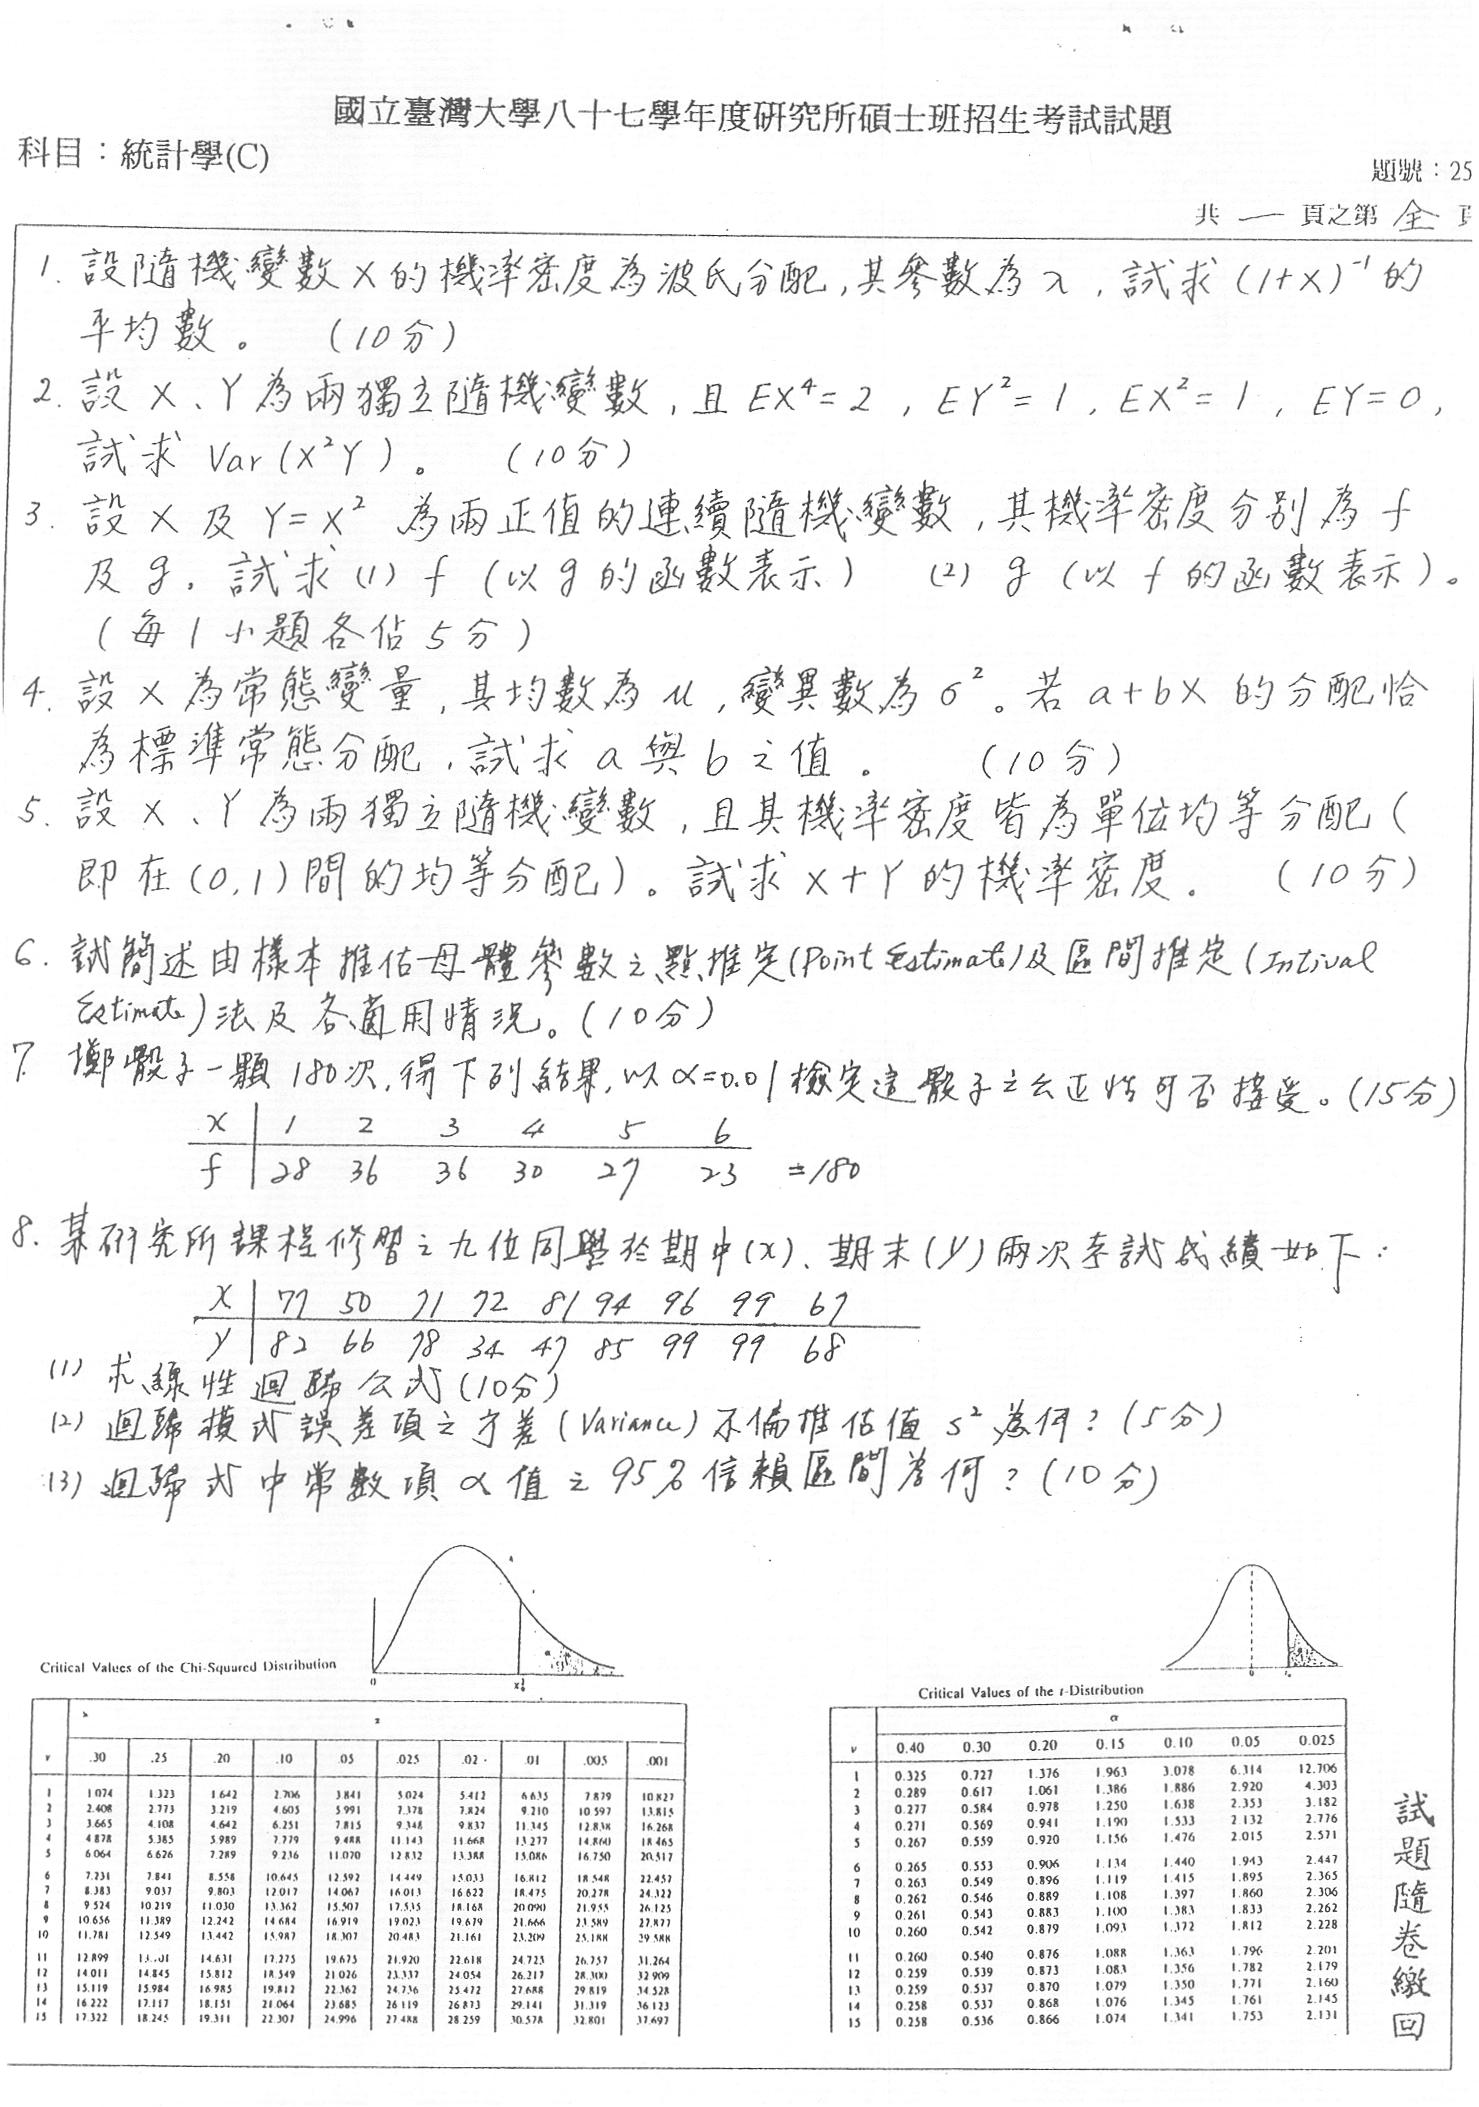 國立臺灣大學八十七學年度研究所碩士班招生考試試題
科目：統計學(C)
題號：25
共 一 頁之第 全 頁
1. 設隨機變數 X 的機率密度為波氏分配,其參數為 λ，試求 (1+X)⁻¹ 的
平均數。 (10分)
2. 設 X、Y 為兩獨立隨機變數，且 EX⁴=2，EY²=1，EX²=1，EY=0，
試求 Var(X²Y)。 (10分)
3. 設 X 及 Y=X² 為兩正值的連續隨機變數，其機率密度分別為 f
及 g。試求 (1) f (以 g 的函數表示) (2) g (以 f 的函數表示)。
(每1小題各佔5分)
4. 設 X 為常態變量，其均數為 u，變異數為 σ²。若 a+bX 的分配恰
為標準常態分配，試求 a 與 b 之值。 (10分)
5. 設 X、Y 為兩獨立隨機變數，且其機率密度皆為單位均等分配(
即在(0,1)間的均等分配)。試求 X+Y 的機率密度。 (10分)
6. 試簡述由樣本推估母體參數之點推定(Point Estimate)及區間推定(Intival
Estimate)法及各適用情況。(10分)
7. 擲骰子一顆180次,得下列結果,以α=0.01檢定這骰子之公正性可否接受。(15分)
x | 1 2 3 4 5 6
f | 28 36 36 30 27 23 =180
8. 某研究所課程修習之九位同學於期中(x)、期末(y)兩次考試成績如下：
X | 77 50 71 72 81 94 96 99 67
y | 82 66 78 34 47 85 99 99 68
(1) 求線性迴歸公式(10分)
(2) 迴歸模式誤差項之方差(Variance)不偏推估值 s² 為何？(5分)
(3) 迴歸式中常數項 α 值之95%信賴區間為何？(10分)
Critical Values of the Chi-Squared Distribution
0
Critical Values of the t-Distribution
0
α
ν .30 .25 .20 .10 .05 .025 .02 .01 .005 .001
1 1.074 1.323 1.642 2.706 3.841 5.024 5.412 6.635 7.879 10.827
2 2.408 2.773 3.219 4.605 5.991 7.378 7.824 9.210 10.597 13.815
3 3.665 4.108 4.642 6.251 7.815 9.348 9.837 11.345 12.838 16.268
4 4.878 5.385 5.989 7.779 9.488 11.143 11.668 13.277 14.860 18.465
5 6.064 6.626 7.289 9.236 11.070 12.832 13.388 15.086 16.750 20.517
6 7.231 7.841 8.558 10.645 12.592 14.449 15.033 16.812 18.548 22.457
7 8.383 9.037 9.803 12.017 14.067 16.013 16.622 18.475 20.278 24.322
8 9.524 10.219 11.030 13.362 15.507 17.535 18.168 20.090 21.955 26.125
9 10.656 11.389 12.242 14.684 16.919 19.023 19.679 21.666 23.589 27.877
10 11.781 12.549 13.442 15.987 18.307 20.483 21.161 23.209 25.188 29.588
11 12.899 14.631 17.275 19.675 21.920 22.618 24.725 26.757 31.264
12 14.011 14.845 15.812 18.549 21.026 23.337 24.054 26.217 28.300 32.909
13 15.119 15.984 16.985 19.812 22.362 24.736 25.472 27.688 29.819 34.528
14 16.222 17.117 18.151 21.064 23.685 26.119 26.873 29.141 31.319 36.123
15 17.322 18.245 19.311 22.307 24.996 27.488 28.259 30.578 32.801 37.697
ν 0.40 0.30 0.20 0.15 0.10 0.05 0.025
1 0.325 0.727 1.376 1.963 3.078 6.314 12.706
2 0.289 0.617 1.061 1.386 1.886 2.920 4.303
3 0.277 0.584 0.978 1.250 1.638 2.353 3.182
4 0.271 0.569 0.941 1.190 1.533 2.132 2.776
5 0.267 0.559 0.920 1.156 1.476 2.015 2.571
6 0.265 0.553 0.906 1.134 1.440 1.943 2.447
7 0.263 0.549 0.896 1.119 1.415 1.895 2.365
8 0.262 0.546 0.889 1.108 1.397 1.860 2.306
9 0.261 0.543 0.883 1.100 1.383 1.833 2.262
10 0.260 0.542 0.879 1.093 1.372 1.812 2.228
11 0.260 0.540 0.876 1.088 1.363 1.796 2.201
12 0.259 0.539 0.873 1.083 1.356 1.782 2.179
13 0.259 0.537 0.870 1.079 1.350 1.771 2.160
14 0.258 0.537 0.868 1.076 1.345 1.761 2.145
15 0.258 0.536 0.866 1.074 1.341 1.753 2.131
試題隨卷繳回